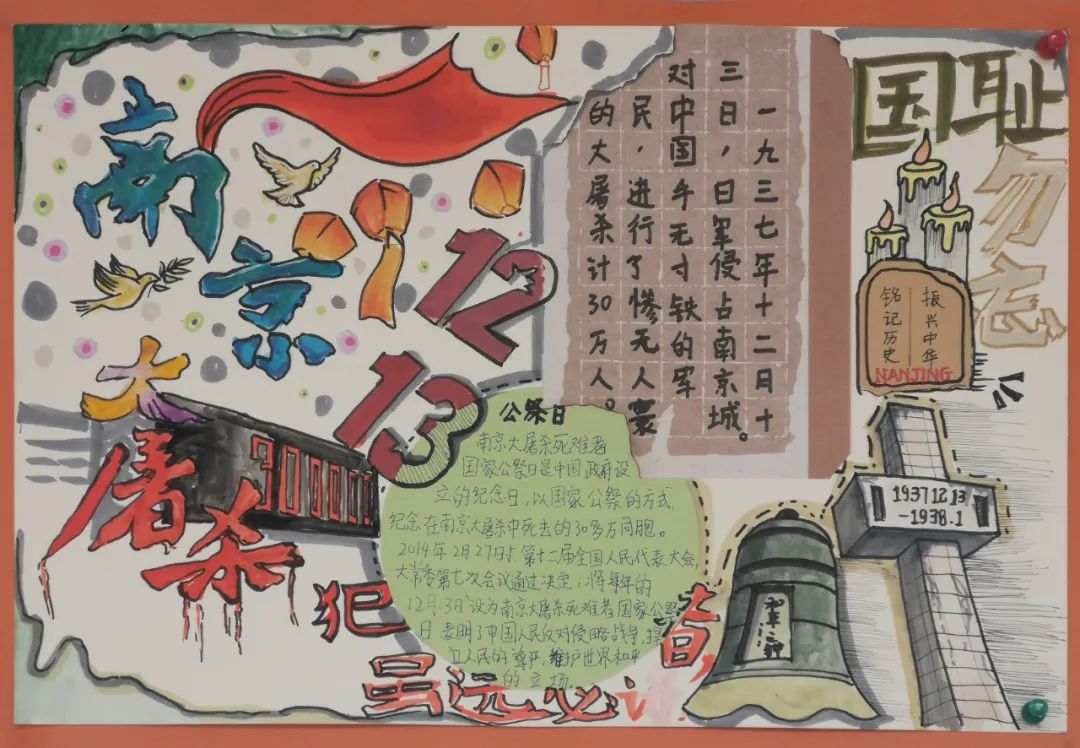 南京
大
屠杀
12
13
300000
一九三七年十二月十
三日，日军侵占南京城。
对中国手无寸铁的军
民，进行了惨无人寰
的大屠杀计30万人。
国耻
勿忘
振兴中华
铭记历史
NANJING
1937.12.13
-1938.1
公祭日
南京大屠杀死难者
国家公祭日是中国政府设
立的纪念日，以国家公祭的方式，
纪念在南京大屠杀中死去的30多万同胞。
2014年2月27日，第十二届全国人民代表大会，
大常委第七次会议通过决定，将每年的
12月13日设为南京大屠杀死难者国家公祭
日 表明了中国人民反对侵略战争，捍
卫人民的尊严，维护世界和平
的立场。
犯
者，
虽远必